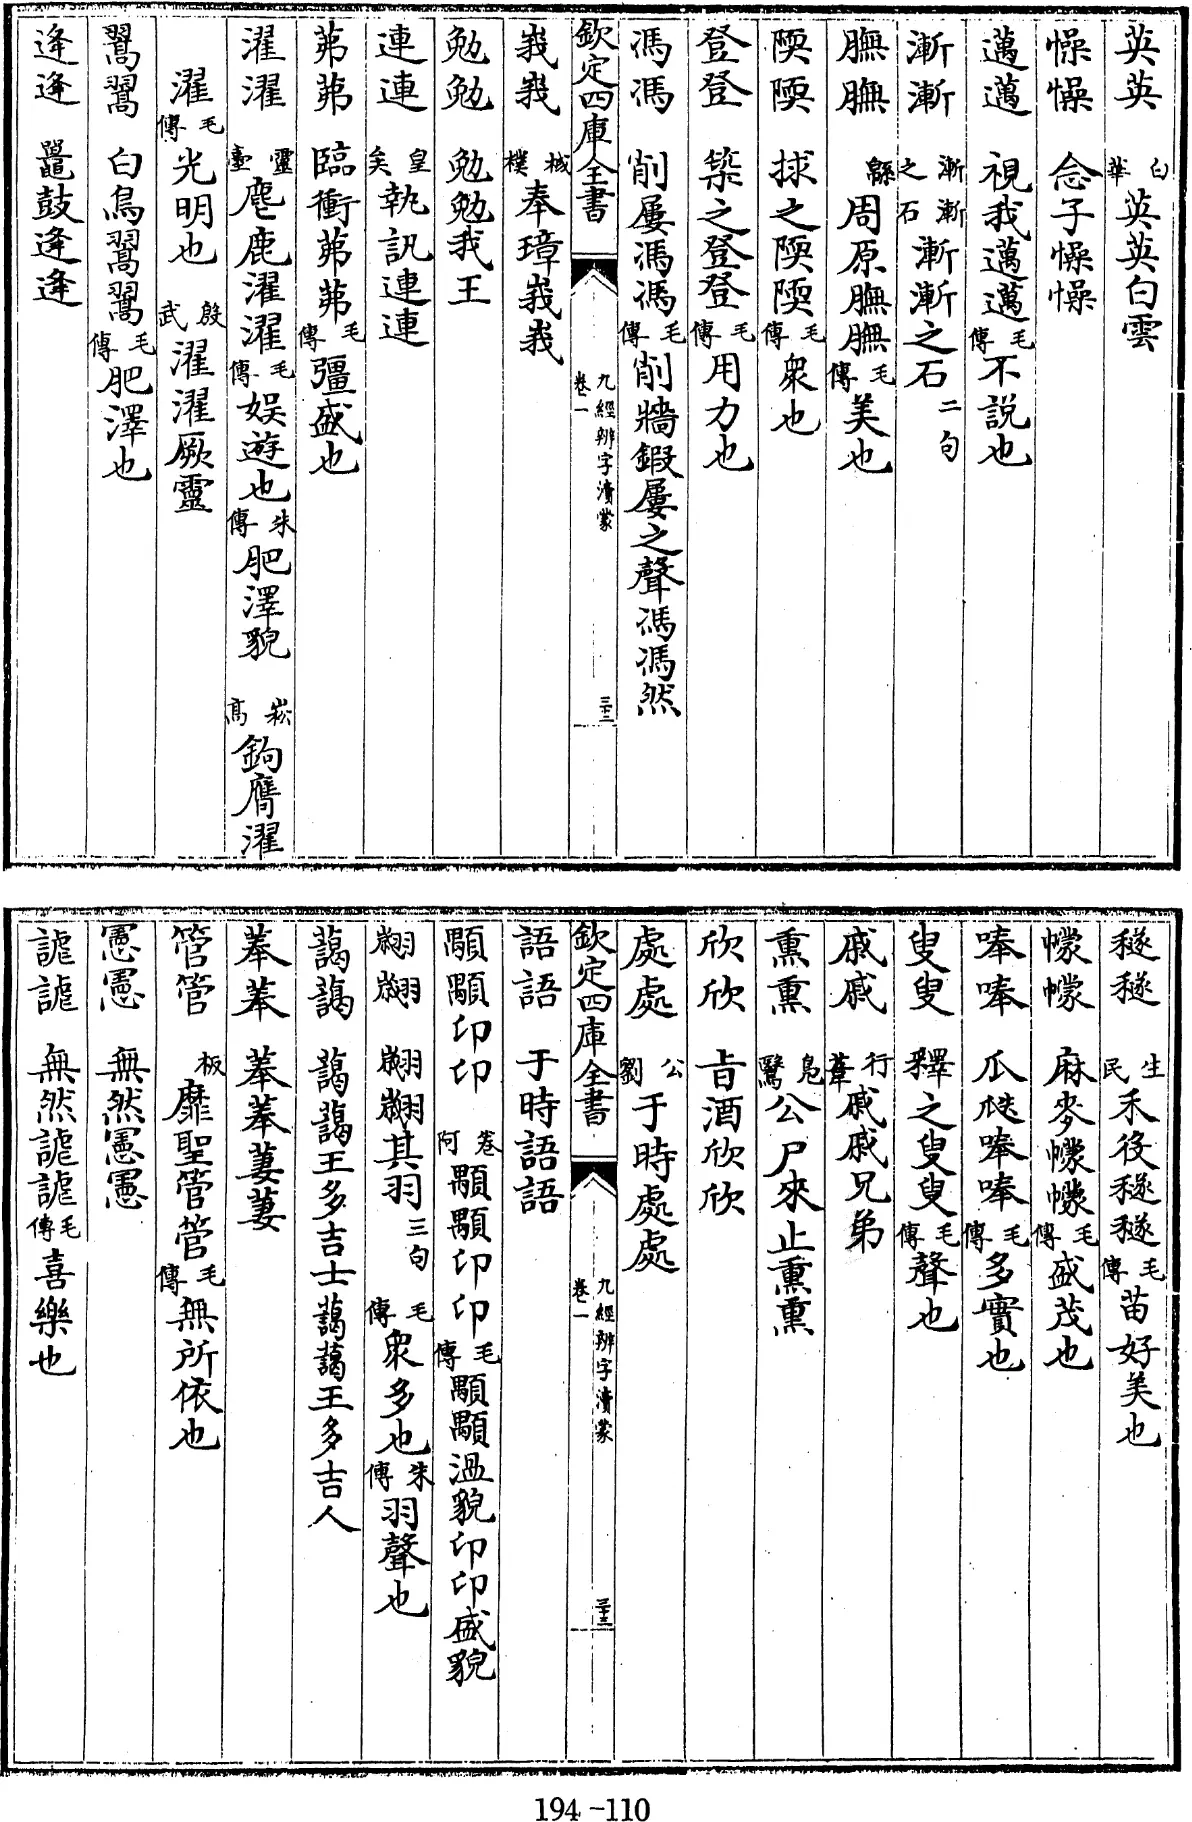 英英 白華英英白雲
懆懆 念子懆懆
邁邁 視我邁邁毛傳不說也
漸漸 漸漸之石漸漸之石二句
膴膴 緜周原膴膴毛傳美也
陾陾 捄之陾陾毛傳衆也
登登 築之登登毛傳用力也
馮馮 削屢馮馮毛傳削牆鍜屢之聲馮馮然
欽定四庫全書 九經辨字瀆蒙 卷一 三十二
峩峩 棫樸奉璋峩峩
勉勉 勉勉我王
連連 皇矣執訊連連
茀茀 臨衝茀茀毛傳彊盛也
濯濯 靈臺麀鹿濯濯毛傳娛遊也朱傳肥澤貌 崧高鉤膺濯
濯毛傳光明也 殷武濯濯厥靈
翯翯 白鳥翯翯毛傳肥澤也
逢逢 鼉鼓逢逢
穟穟 生民禾役穟穟毛傳苗好美也
幪幪 麻麥幪幪毛傳盛茂也
唪唪 瓜瓞唪唪毛傳多實也
叟叟 釋之叟叟毛傳聲也
戚戚 行葦戚戚兄弟
熏熏 鳧鷖公尸來止熏熏
欣欣 旨酒欣欣
處處 公劉于時處處
欽定四庫全書 九經辨字瀆蒙 卷一 三十三
語語 于時語語
顒顒卬卬 卷阿顒顒卬卬毛傳顒顒溫貌卬卬盛貌
翽翽 翽翽其羽三句 毛傳衆多也朱傳羽聲也
藹藹 藹藹王多吉士藹藹王多吉人
菶菶 菶菶萋萋
管管 板靡聖管管毛傳無所依也
憲憲 無然憲憲
謔謔 無然謔謔毛傳喜樂也
194-110